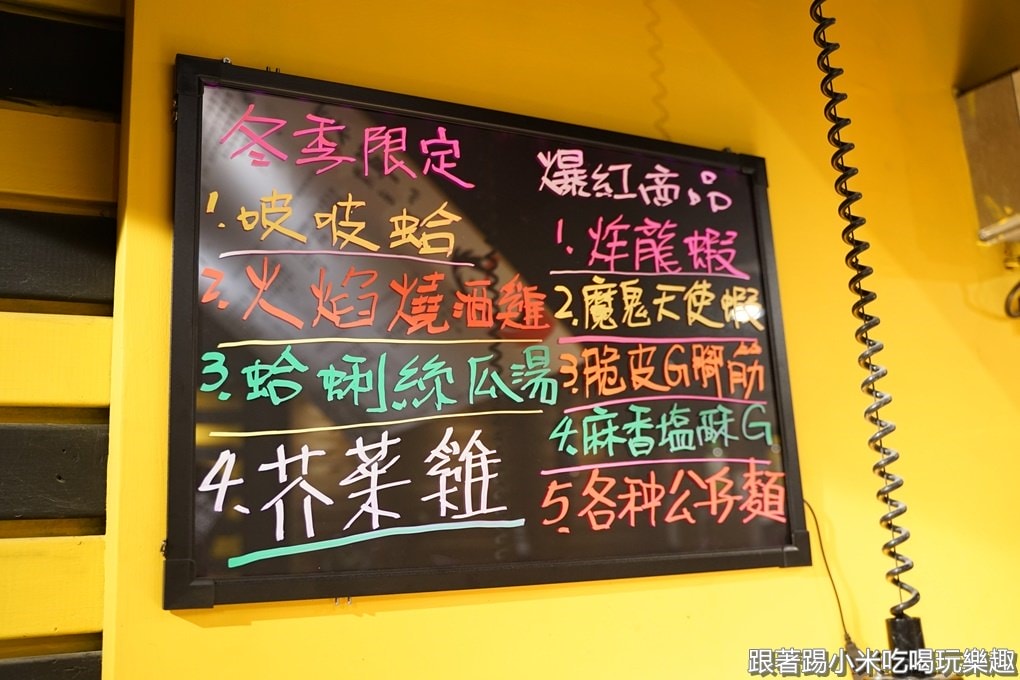 冬季限定
1.啵吱蛤
2.火焰燒酒雞
3.蛤蜊絲瓜湯
4.芥菜雞
爆紅商品
1.炸龍蝦
2.魔鬼天使蝦
3.脆皮G腳筋
4.麻香塩酥G
5.各种公仔麵
跟著踢小米吃喝玩樂趣